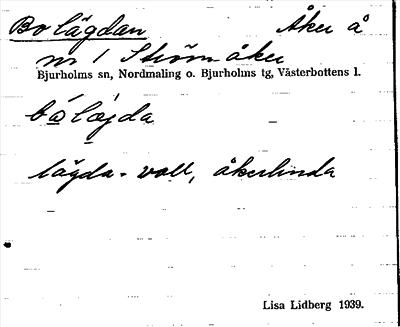 Bo lägdan Åker å
nr 1 Strömåker
Bjurholms sn, Nordmaling o. Bjurholms tg, Västerbottens l.
lägda - vall, åkerlinda
Lisa Lidberg 1939.